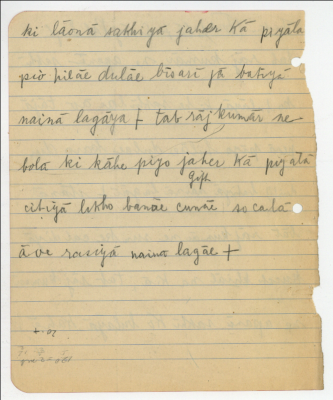 ki lāonā sakhiyā jaher kā piyālā
pio pilāe dulāe bisari jā batiye
nainā lagāya + tab rājkumār ne
bolā ki kāhe piyo jaher kā piyālā
citiyā likho banāe cunāe so calā
āve rasiyā naina lagāe +